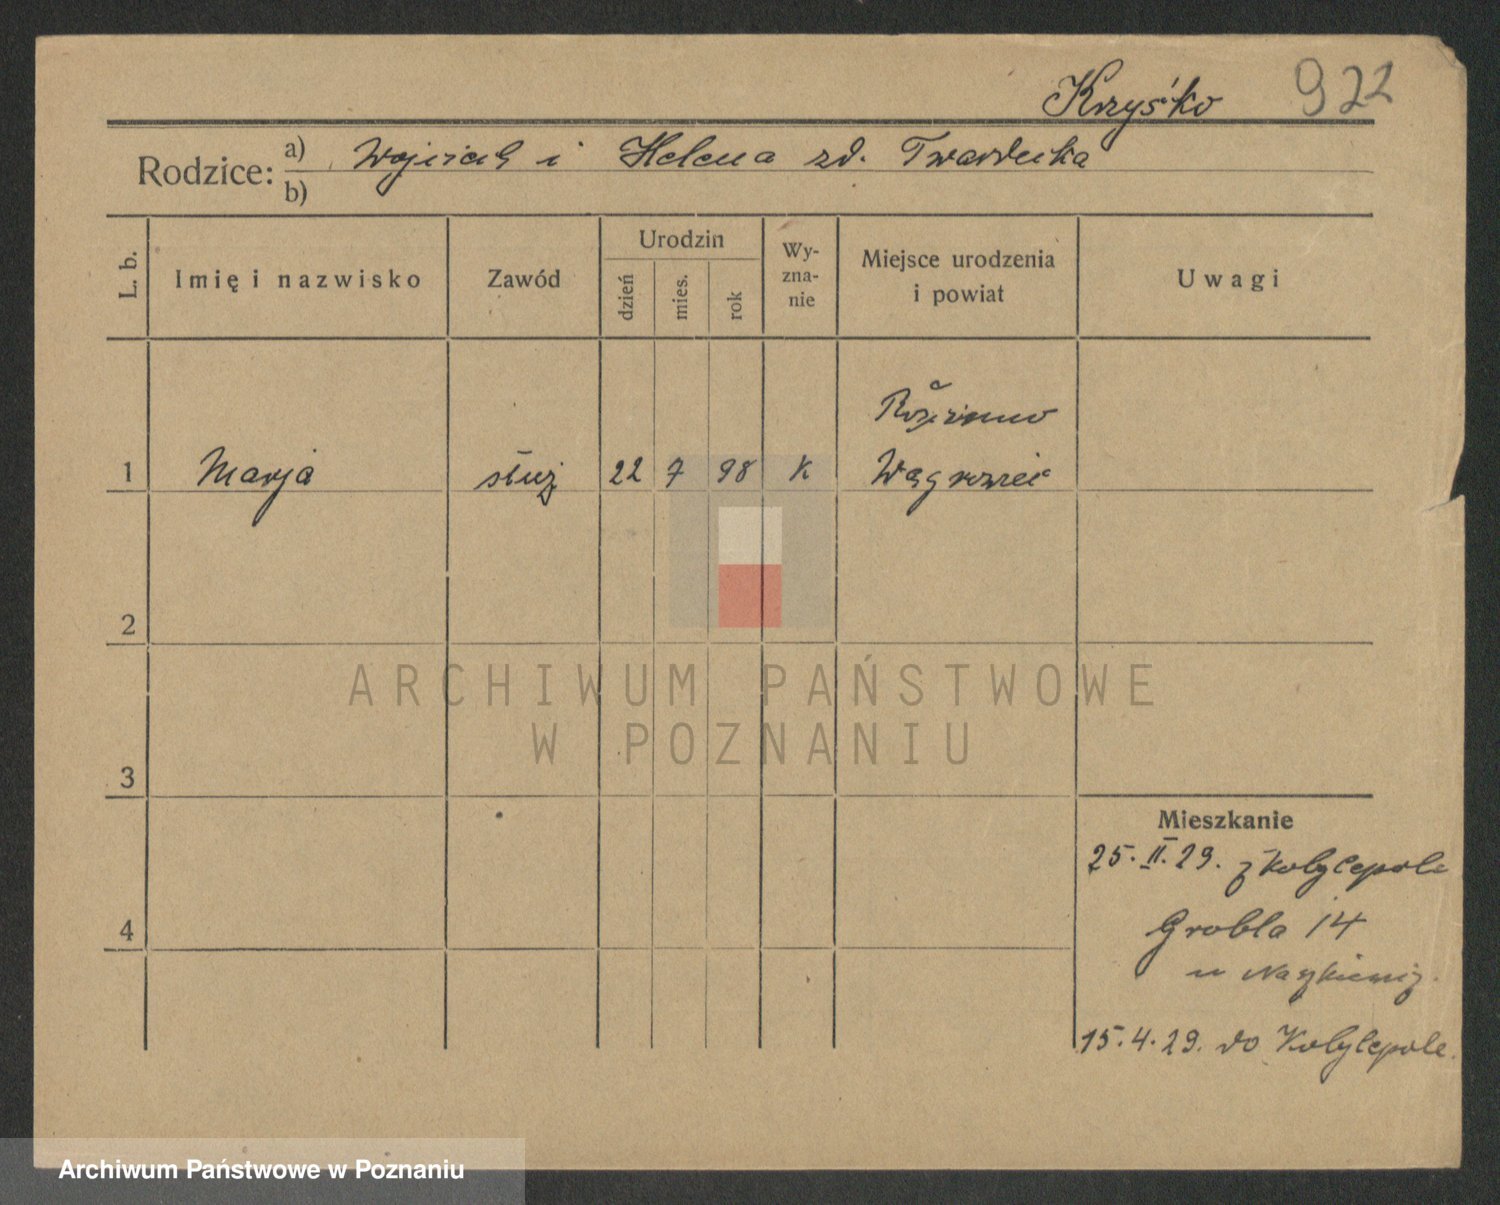 Krzyśko 922
Rodzice: a) Wojciech i Helena zd. Twardecka
b)
L. b. Imię i nazwisko Zawód Urodzin dzień mies. rok Wy-zna-nie Miejsce urodzenia i powiat Uwagi
1 Marja służ 22 7 98 K
Wągrowiec
2
3
4
Mieszkanie
25. II. 29. z Kobylepole
Grobla 14
u
15. 4. 29. do Kobylepole.
ARCHIWUM PAŃSTWOWE
W POZNANIU
Archiwum Państwowe w Poznaniu